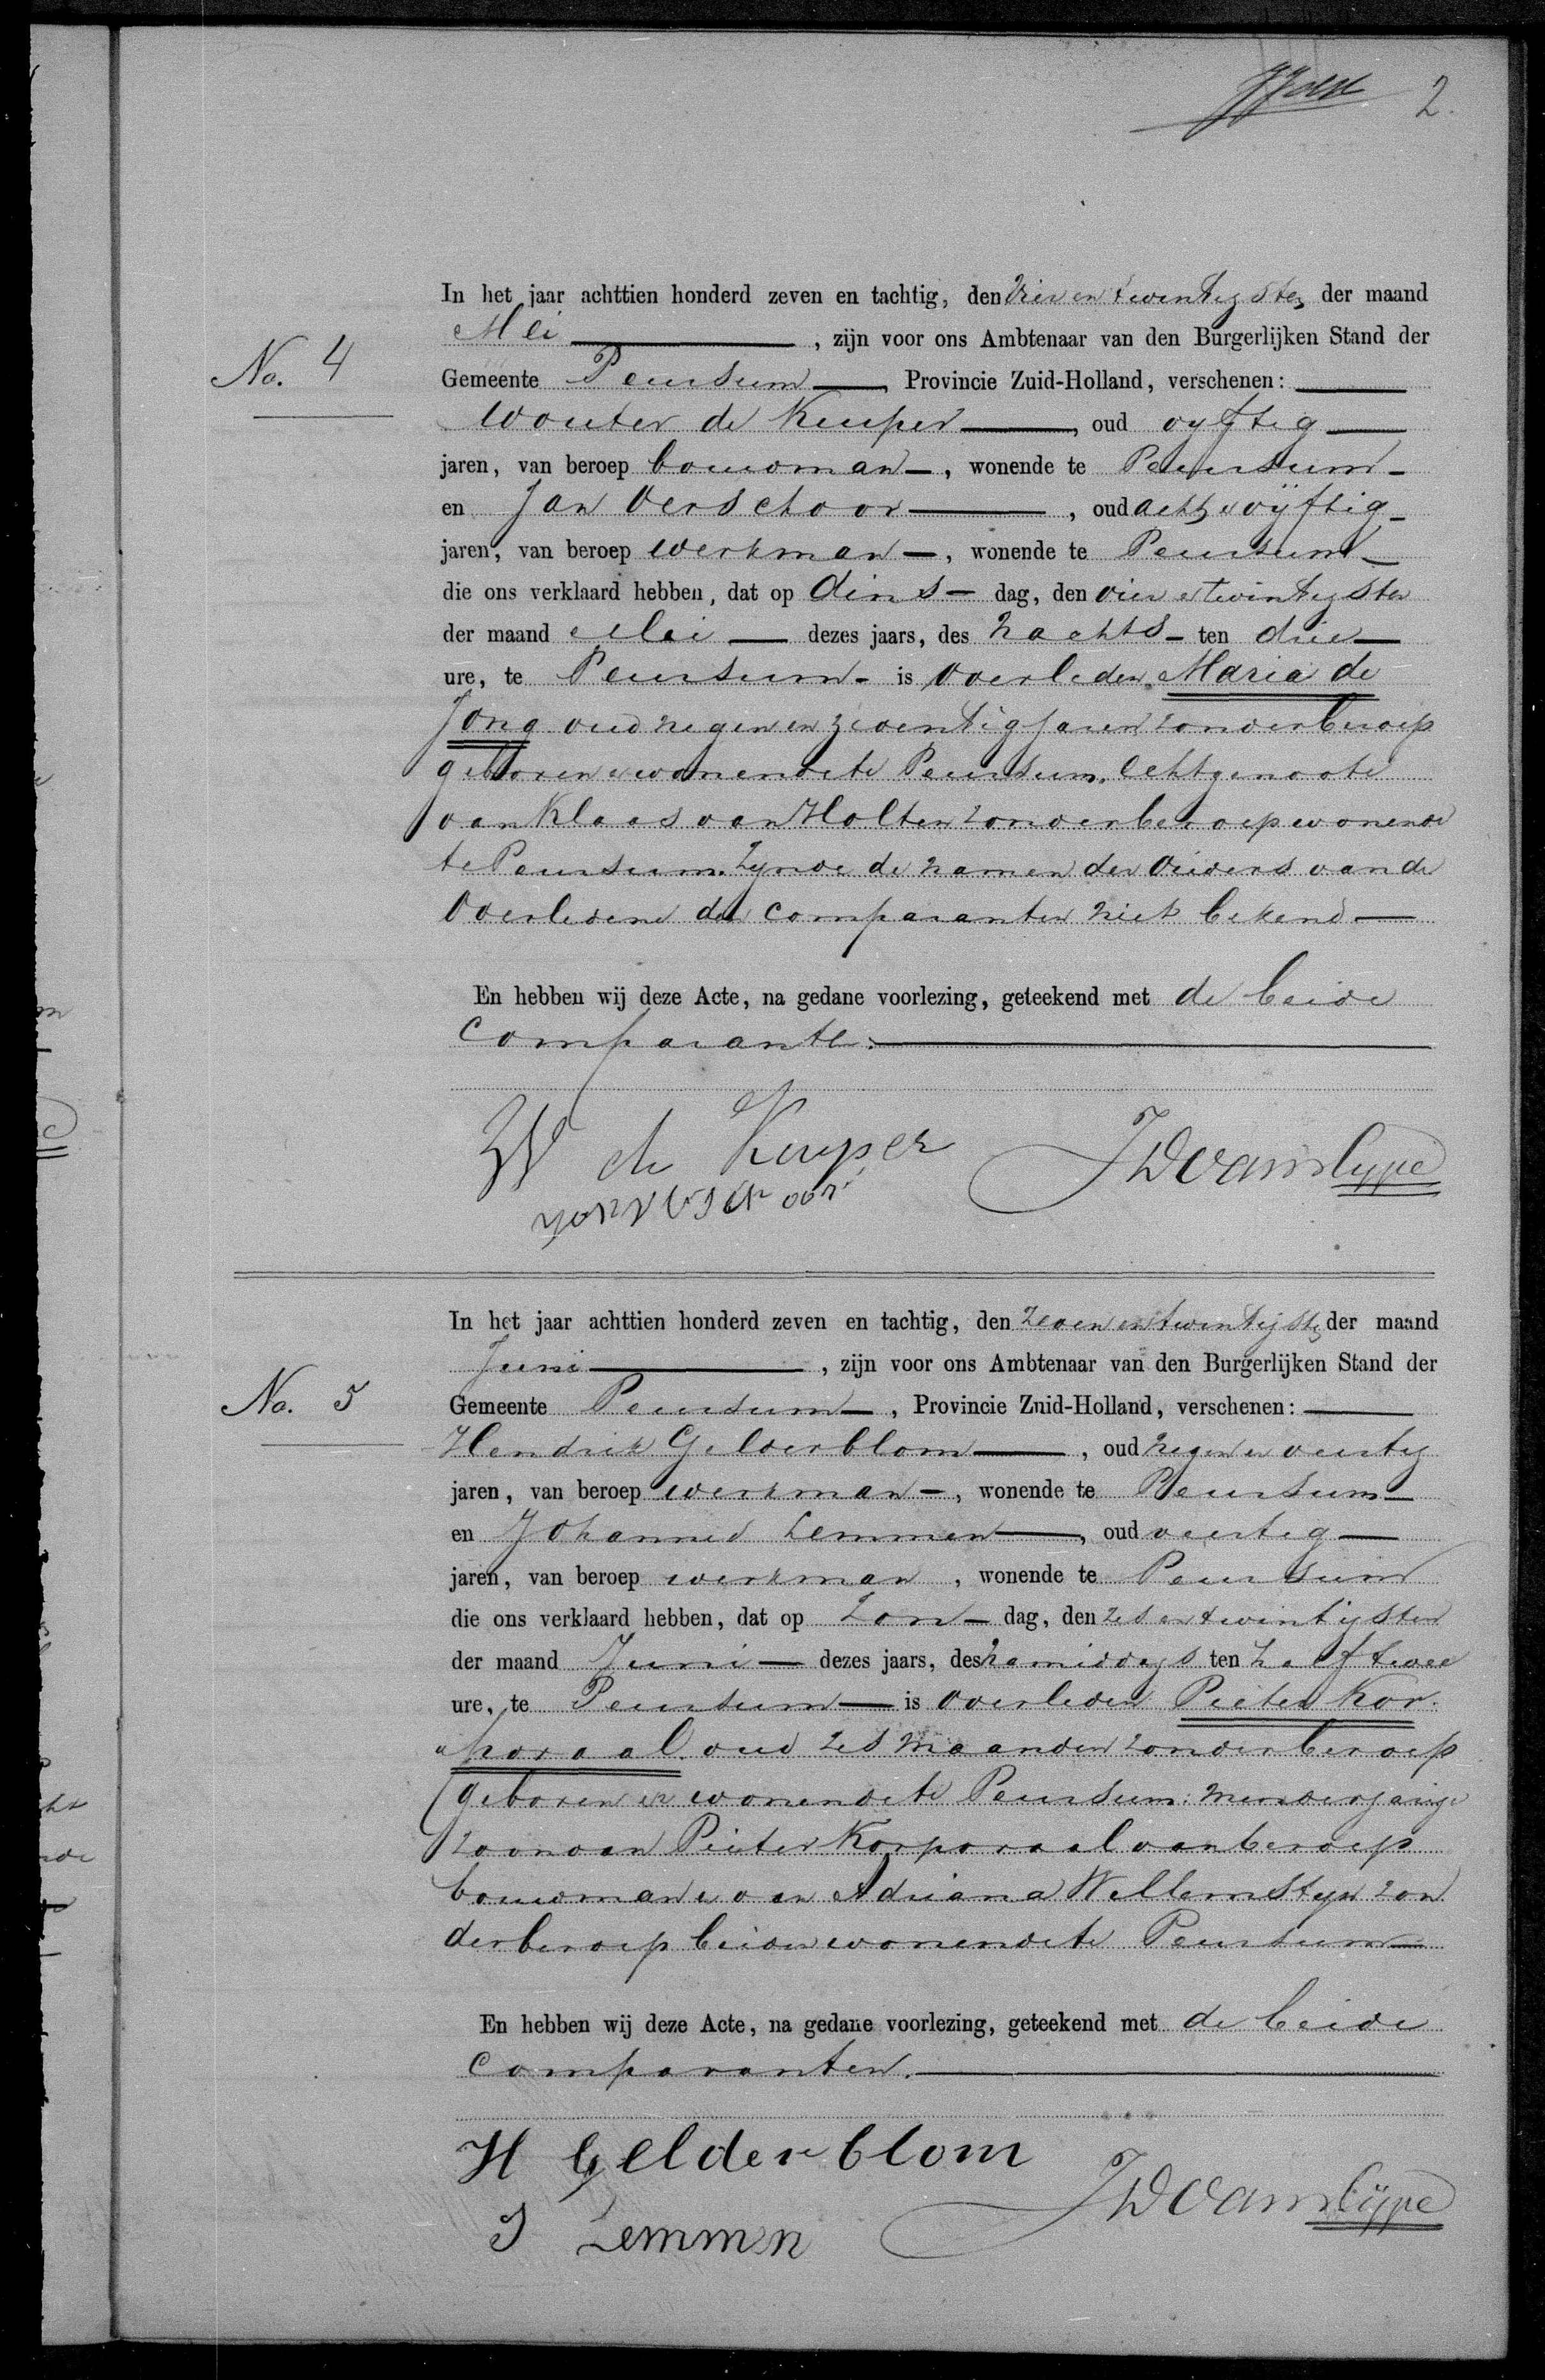 2.
In het jaar achttien honderd zeven en tachtig, den Vier en twintigsten der maand
Mei, zijn voor ons Ambtenaar van den Burgerlijken Stand der
No. 4
Gemeente Peursum, Provincie Zuid-Holland, verschenen:
Wouter de Kuijper, oud vijftig
jaren, van beroep bouwman, wonende te Peursum
en Jan Verschoor, oud acht en vijftig
jaren, van beroep werkman, wonende te Peursum
die ons verklaard hebben, dat op dins dag, den vier en twintigsten
der maand Mei dezes jaars, des nachts ten drie
ure, te Peursum is overleden Maria de
Jong oud negen en zeventig jaren zonder beroep
geboren en wonende te Peursum, echtgenoote
van Klaas van Holten zonder beroep wonende
te Peursum. Zijnde de namen der Ouders van de
Overledene den comparanten niet bekend
En hebben wij deze Acte, na gedane voorlezing, geteekend met de beide
comparanten.
W de Kuyper
JD van Lijpe
In het jaar achttien honderd zeven en tachtig, den zeven en twintigsten der maand
Juni, zijn voor ons Ambtenaar van den Burgerlijken Stand der
No. 5
Gemeente Peursum, Provincie Zuid-Holland, verschenen:
Hendrik Gelderblom, oud negen en veertig
jaren, van beroep werkman, wonende te Peursum
en Johannes Lemmen, oud veertig
jaren, van beroep werkman, wonende te Peursum
die ons verklaard hebben, dat op Zon dag, den zes en twintigsten
der maand Juni dezes jaars, des namiddags ten half twee
ure, te Peursum is overleden Pieter Kor-
poraal oud zes maanden zonder beroep
geboren en wonende te Peursum. minderjarige
zoon van Pieter Korporaal van beroep
bouwman en van Adriana Willemstijn zon
der beroep beiden wonende te Peursum
En hebben wij deze Acte, na gedane voorlezing, geteekend met de beide
comparanten.
H Gelderblom
J Lemmen
JD van Lijpe